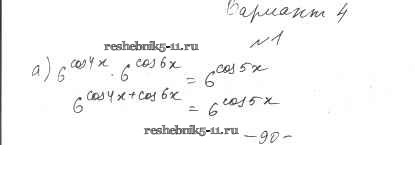 Вариант 4
№1
reshebnik5-11.ru
а) 6^cos4x · 6^cos6x = 6^cos5x
6^cos4x+cos6x = 6^cos5x
reshebnik5-11.ru
-90-